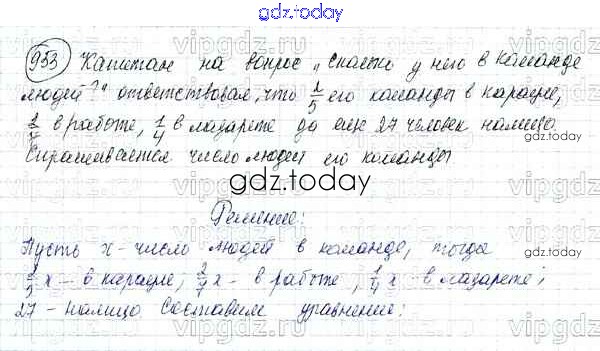 gdz.today
953 Капитан на вопрос „Сколько у него в команде
людей?" ответствовал, что 2/5 его команды в карауле,
2/7 в работе, 1/4 в лазарете да еще 27 человек налицо.
Спрашивается число людей его команды
gdz.today
Решение:
Пусть x - число людей в команде, тогда
2/5 x - в карауле, 2/7 x - в работе, 1/4 x - в лазарете;
27 - налицо. Составим уравнение: